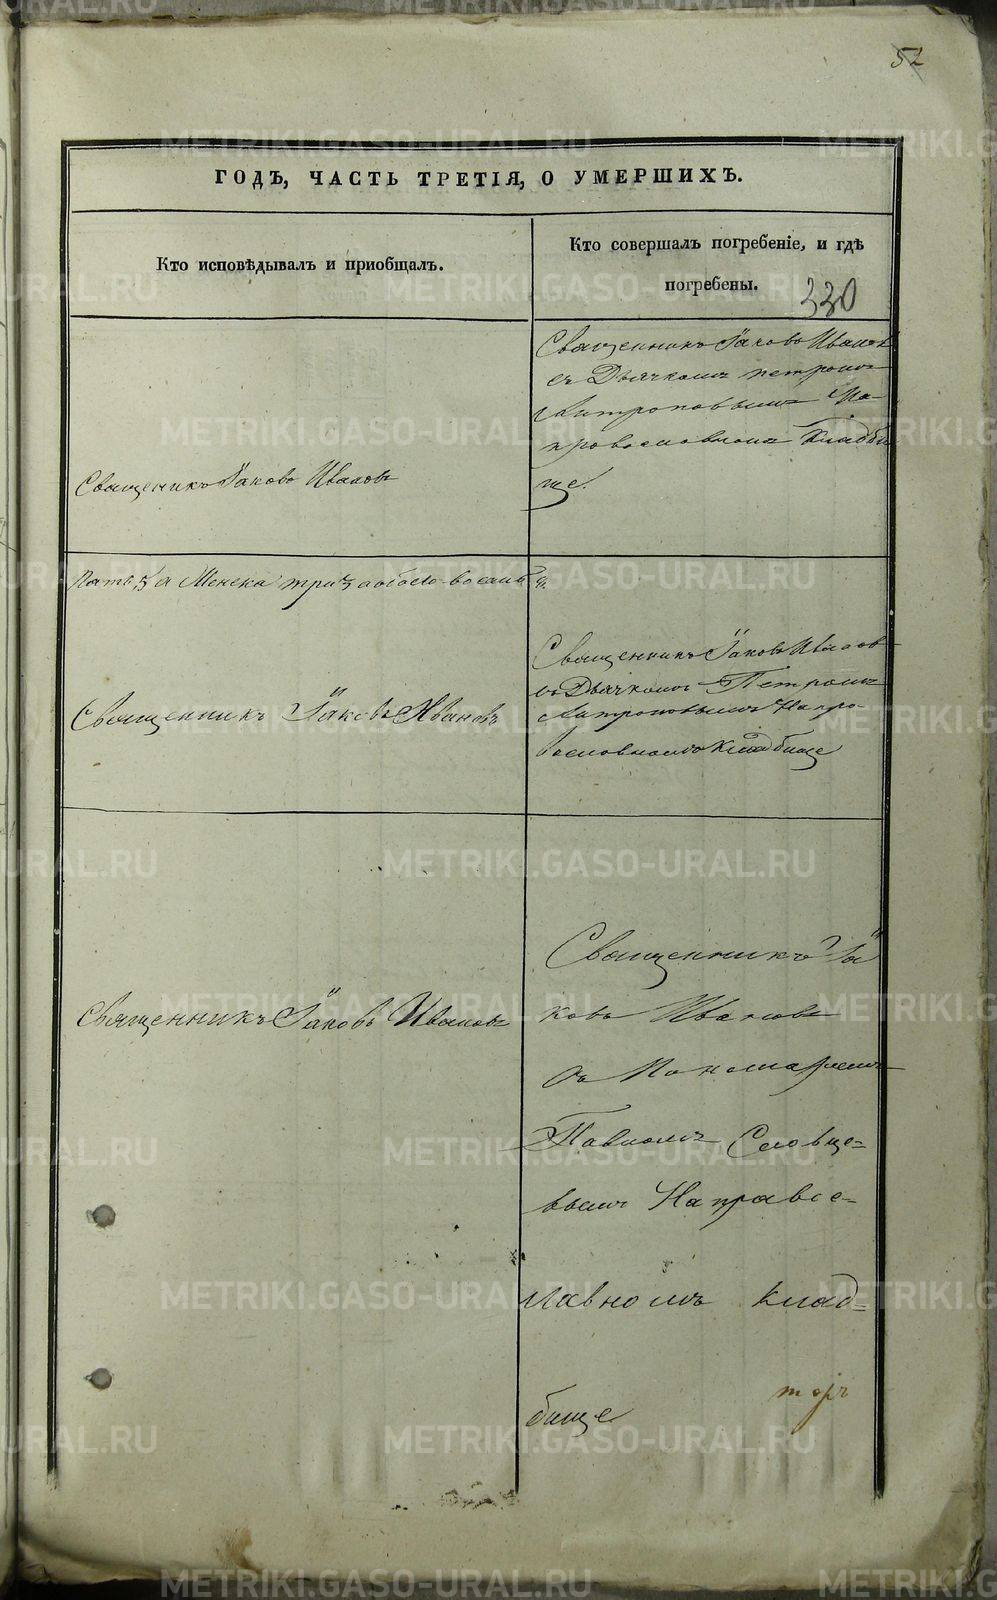 52
ГОДЪ, ЧАСТЬ ТРЕТІЯ, О УМЕРШИХЪ.
Кто исповѣдывалъ и приобщалъ.
Кто совершалъ погребеніе, и гдѣ
погребены.
330
Священникъ Іаковъ Ивановъ
съ Дьячкомъ петромъ
Митроповымъ На
провославномъ Кладби
ще.
Священикъ Іаковъ Ивановъ
Пять, а Женска три, а обоего восемь
Священникъ Іаковъ Ивановъ
Священникъ Іаковъ Ивановъ
съ Дьячкомъ Петромъ
Митроповымъ На про-
вославномъ Кладбище
Священникъ Іаковъ Ивановъ
Священникъ Іа
ковъ Ивановъ
съ Пономаремъ
Павломъ Словце-
вымъ На правос-
лавномъ клад-
бище
METRIKI.GASO-URAL.RU